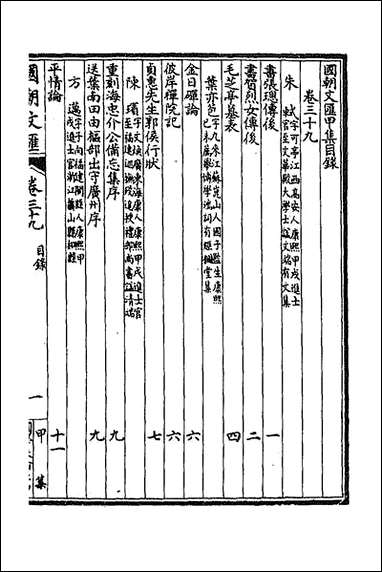 國朝文匯甲集目錄
卷三十九
朱 軾 字可亭江西高安人康熙甲戌進士官至文華殿大學士諡文端有文集
書張璁傳後 一
書賀烈女傳後 二
毛芝亭墓表 四
葉亦苞 字九來江蘇崑山人國子監生康熙己未薦舉博學鴻詞有經鋤堂集
金日磾論 六
彼岸禪院記 六
貞惠先生郭侯行狀 七
陳 璸 字文煥廣東海康人康熙甲戌進士官至福建巡撫追授禮部尚書諡清端
重刻海忠介公備忘集序 九
送葉南田由福郡出守廣州序 九
方 邁 字子向福建閩縣人康熙甲戌進士官浙江蕭山縣知縣
平情論 十一
國朝文匯 卷三十九 目錄 一 甲集